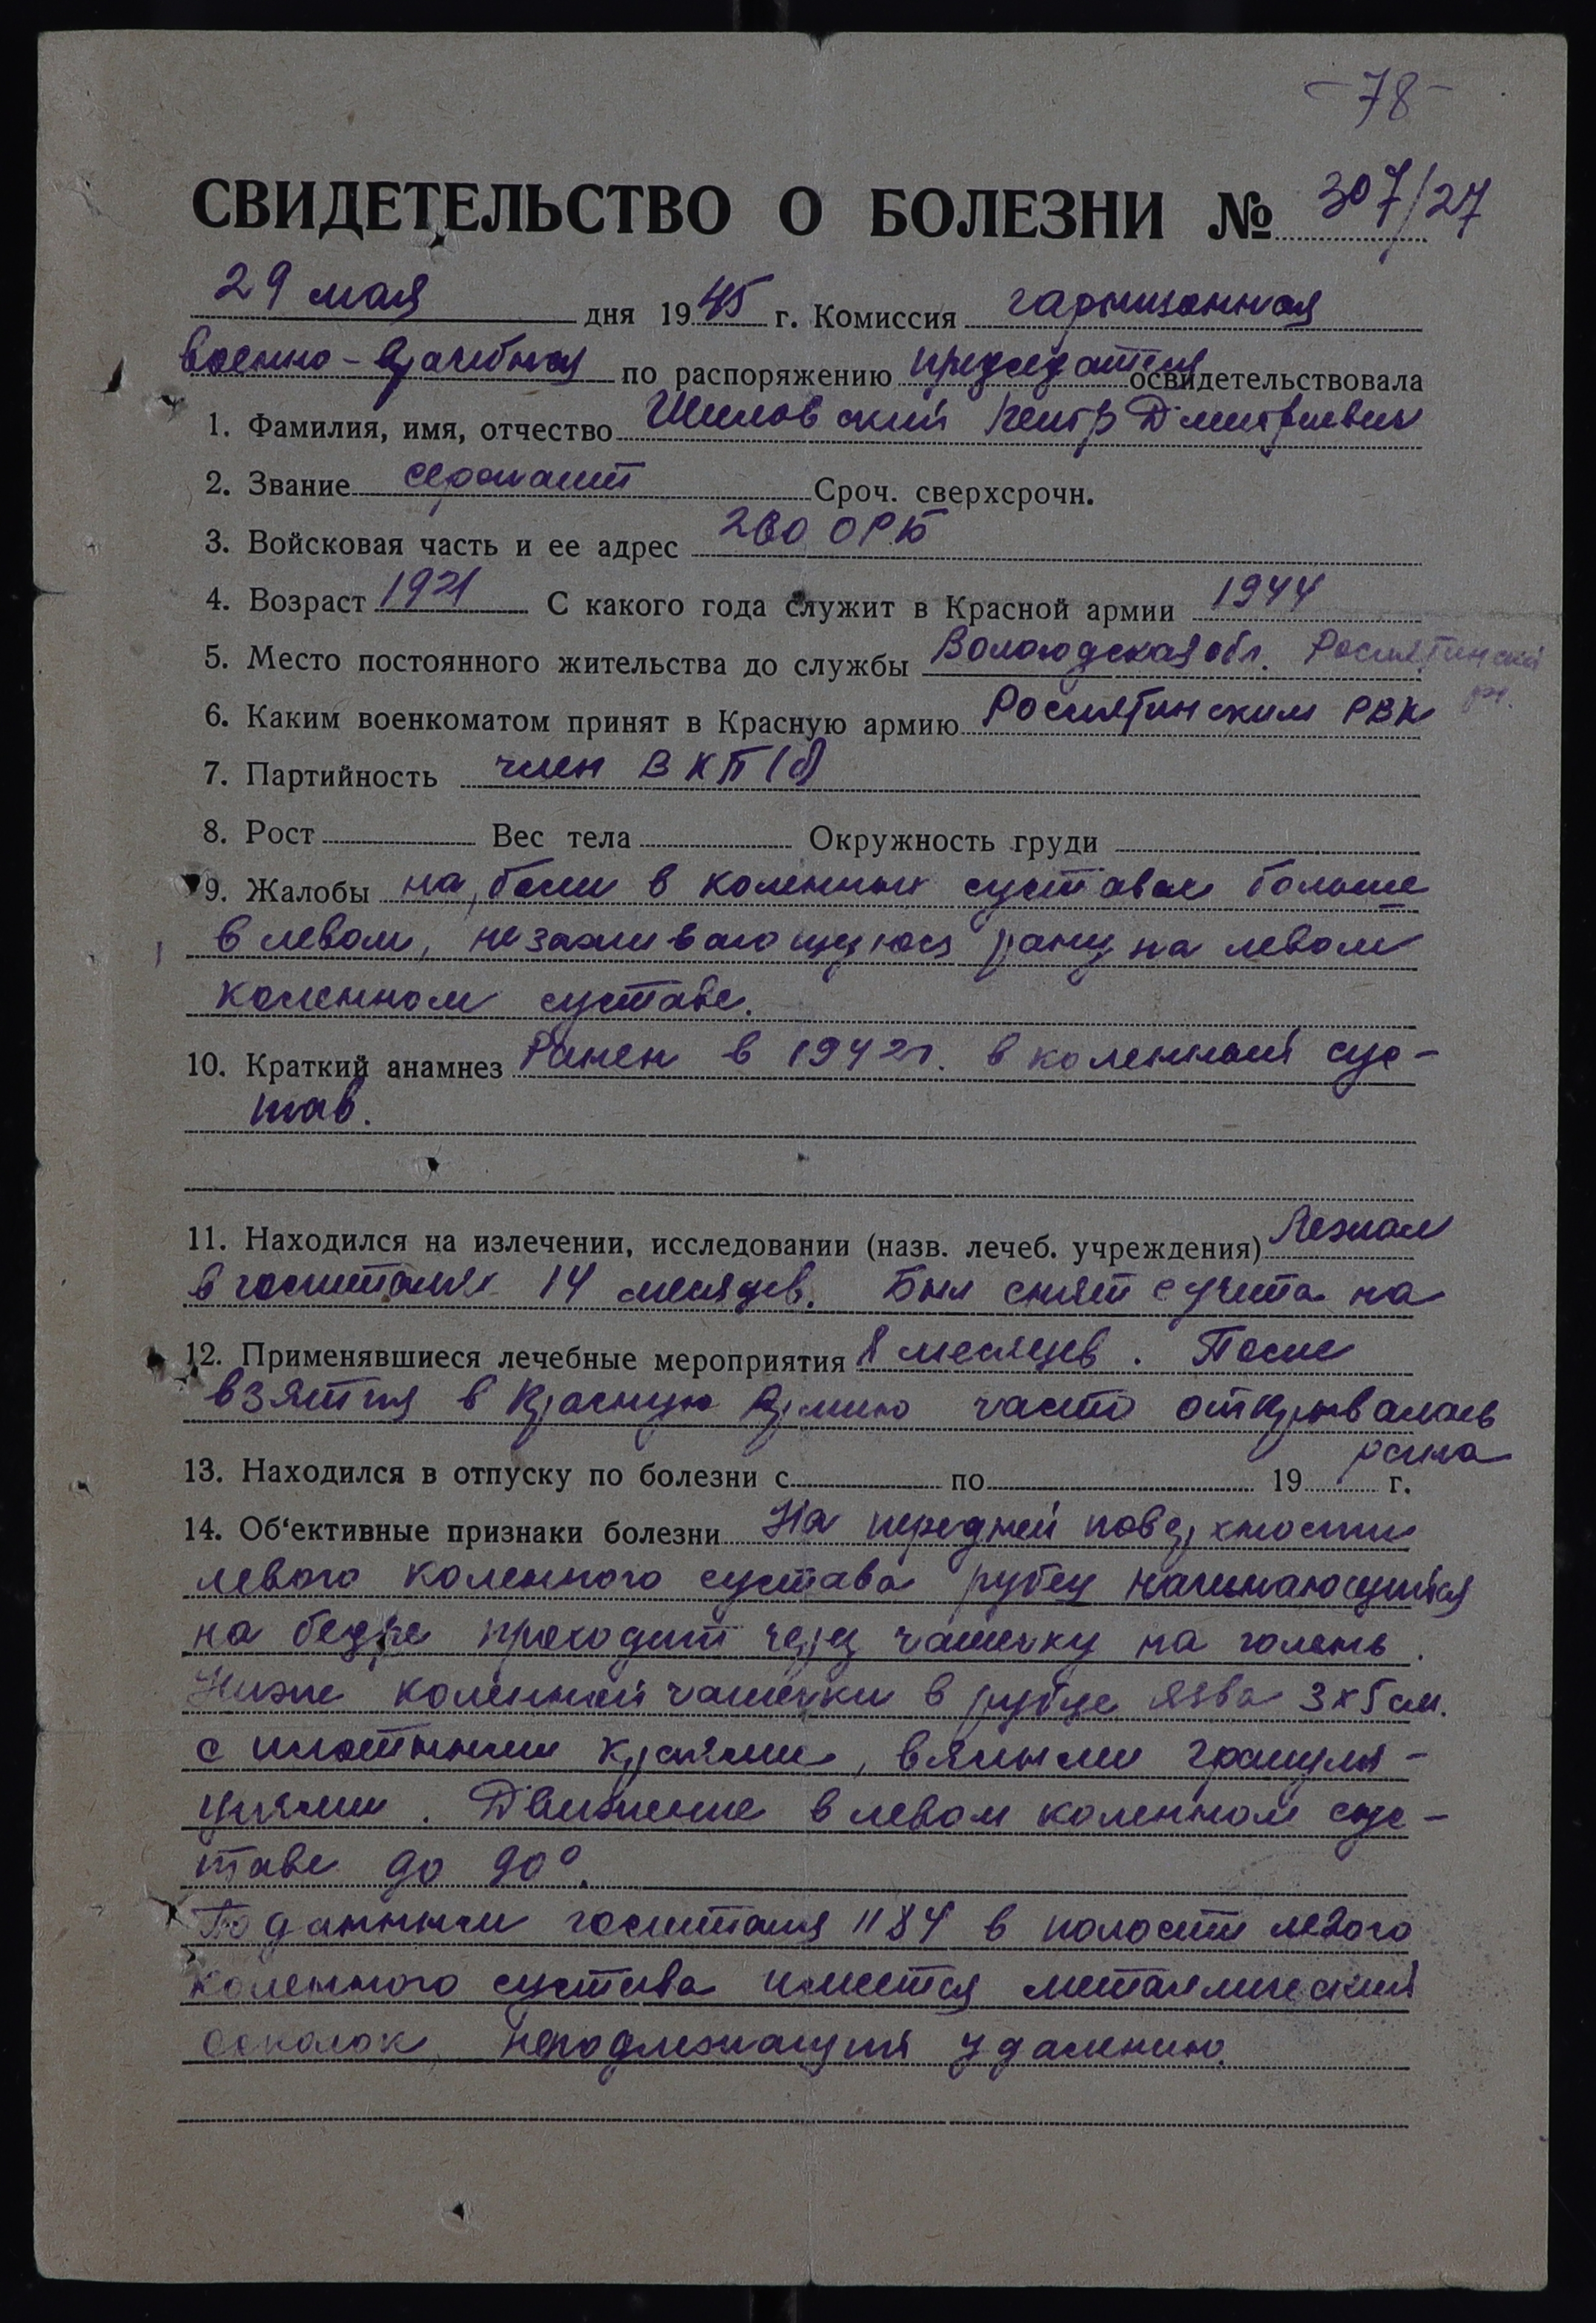 - 78 -
СВИДЕТЕЛЬСТВО О БОЛЕЗНИ № 307/27
29 мая дня 1945 г. Комиссия гарнизонная
военно-врачебная по распоряжению председателя освидетельствовала
1. Фамилия, имя, отчество Шиловский Петр Дмитриевич
2. Звание сержант Сроч. сверхсрочн.
3. Войсковая часть и ее адрес 260 ОРБ
4. Возраст 1921 С какого года служит в Красной армии 1944
5. Место постоянного жительства до службы Вологодская обл. Рослятинский
р-н.
6. Каким военкоматом принят в Красную армию Рослятинским РВК
7. Партийность член ВКП(б)
8. Рост Вес тела Окружность груди
9. Жалобы на боли в коленных суставах больше
в левом, незаживающуюся рану на левом
коленном суставе.
10. Краткий анамнез Ранен в 1942г. в коленный сус-
тав.
11. Находился на излечении, исследовании (назв. лечеб. учреждения) Лежал
в госпиталях 14 месяцев. Был снят с учета на
12. Применявшиеся лечебные мероприятия 8 месяцев. После
взятия в Красную Армию часто открывалась
рана
13. Находился в отпуску по болезни с по 19 г.
14. Об‘ективные признаки болезни На передней поверхности
левого коленного сустава рубец начинающийся
на бедре проходит через чашечку на голень.
Ниже коленной чашечки в рубце язва 3х5 см.
с плотными краями, вялыми грануля-
циями. Движение в левом коленном сус-
таве до 90°.
По данным госпиталя 1184 в полости левого
коленного сустава имеется металлический
осколок, неподлежащий удалению.